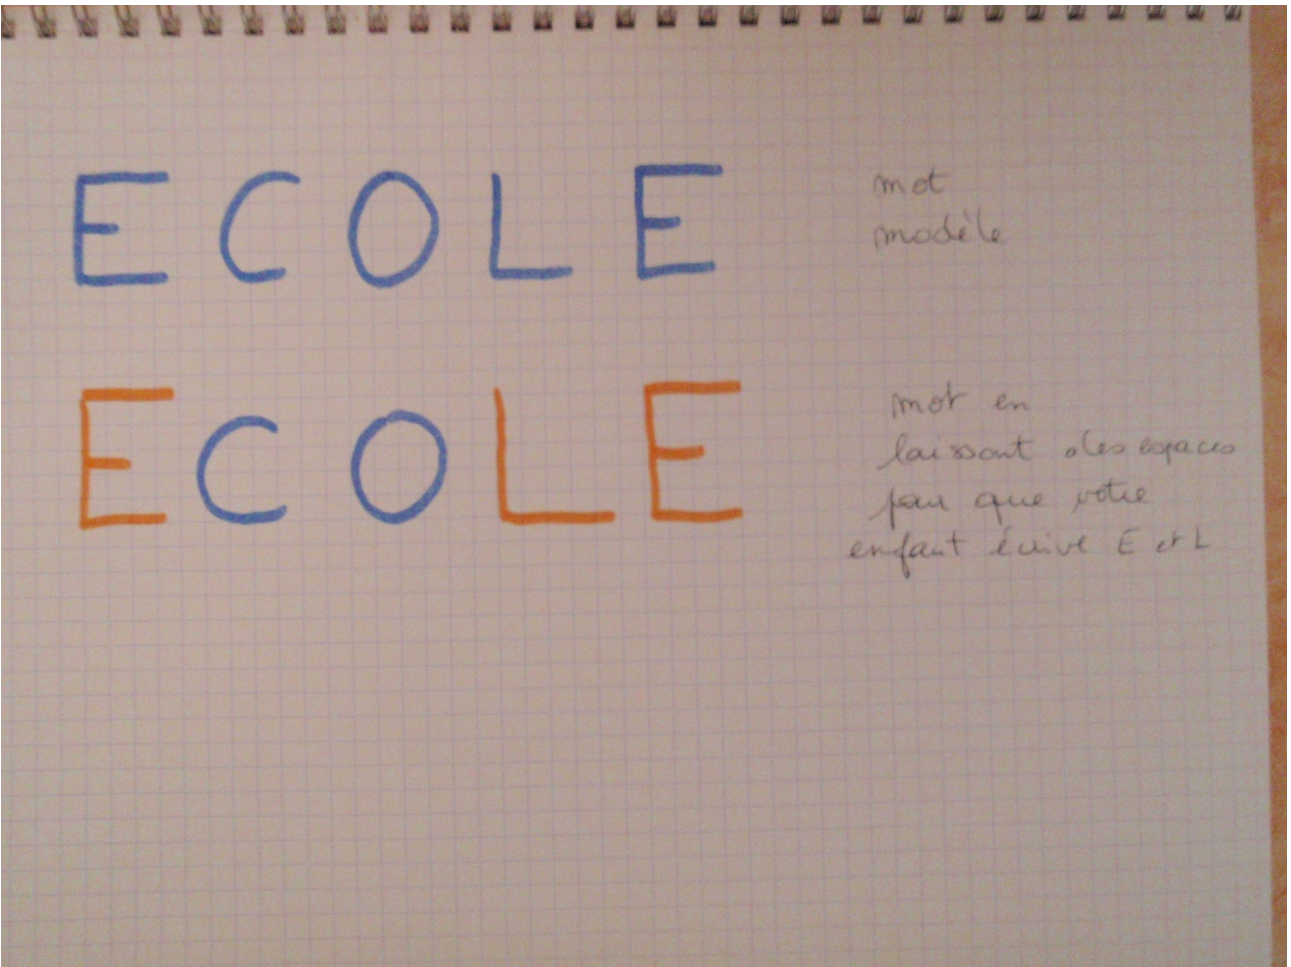 ECOLE
mot
modèle
ECOLE
mot en
laissant des espaces
pour que votre
enfant écrive E et L